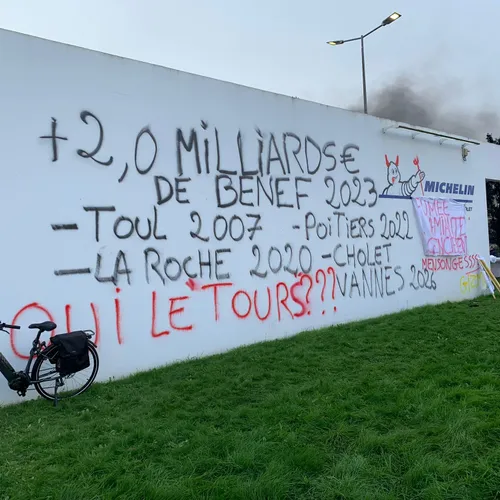 +2,0 MiLLiARDS€
DE BENEF 2023
-TOUL 2007 -POiTiERS 2022
-LA ROCHE 2020 -CHOLET
VANNES 2026
QUI LE TOURS???
MICHELIN
MENSONGESSSS